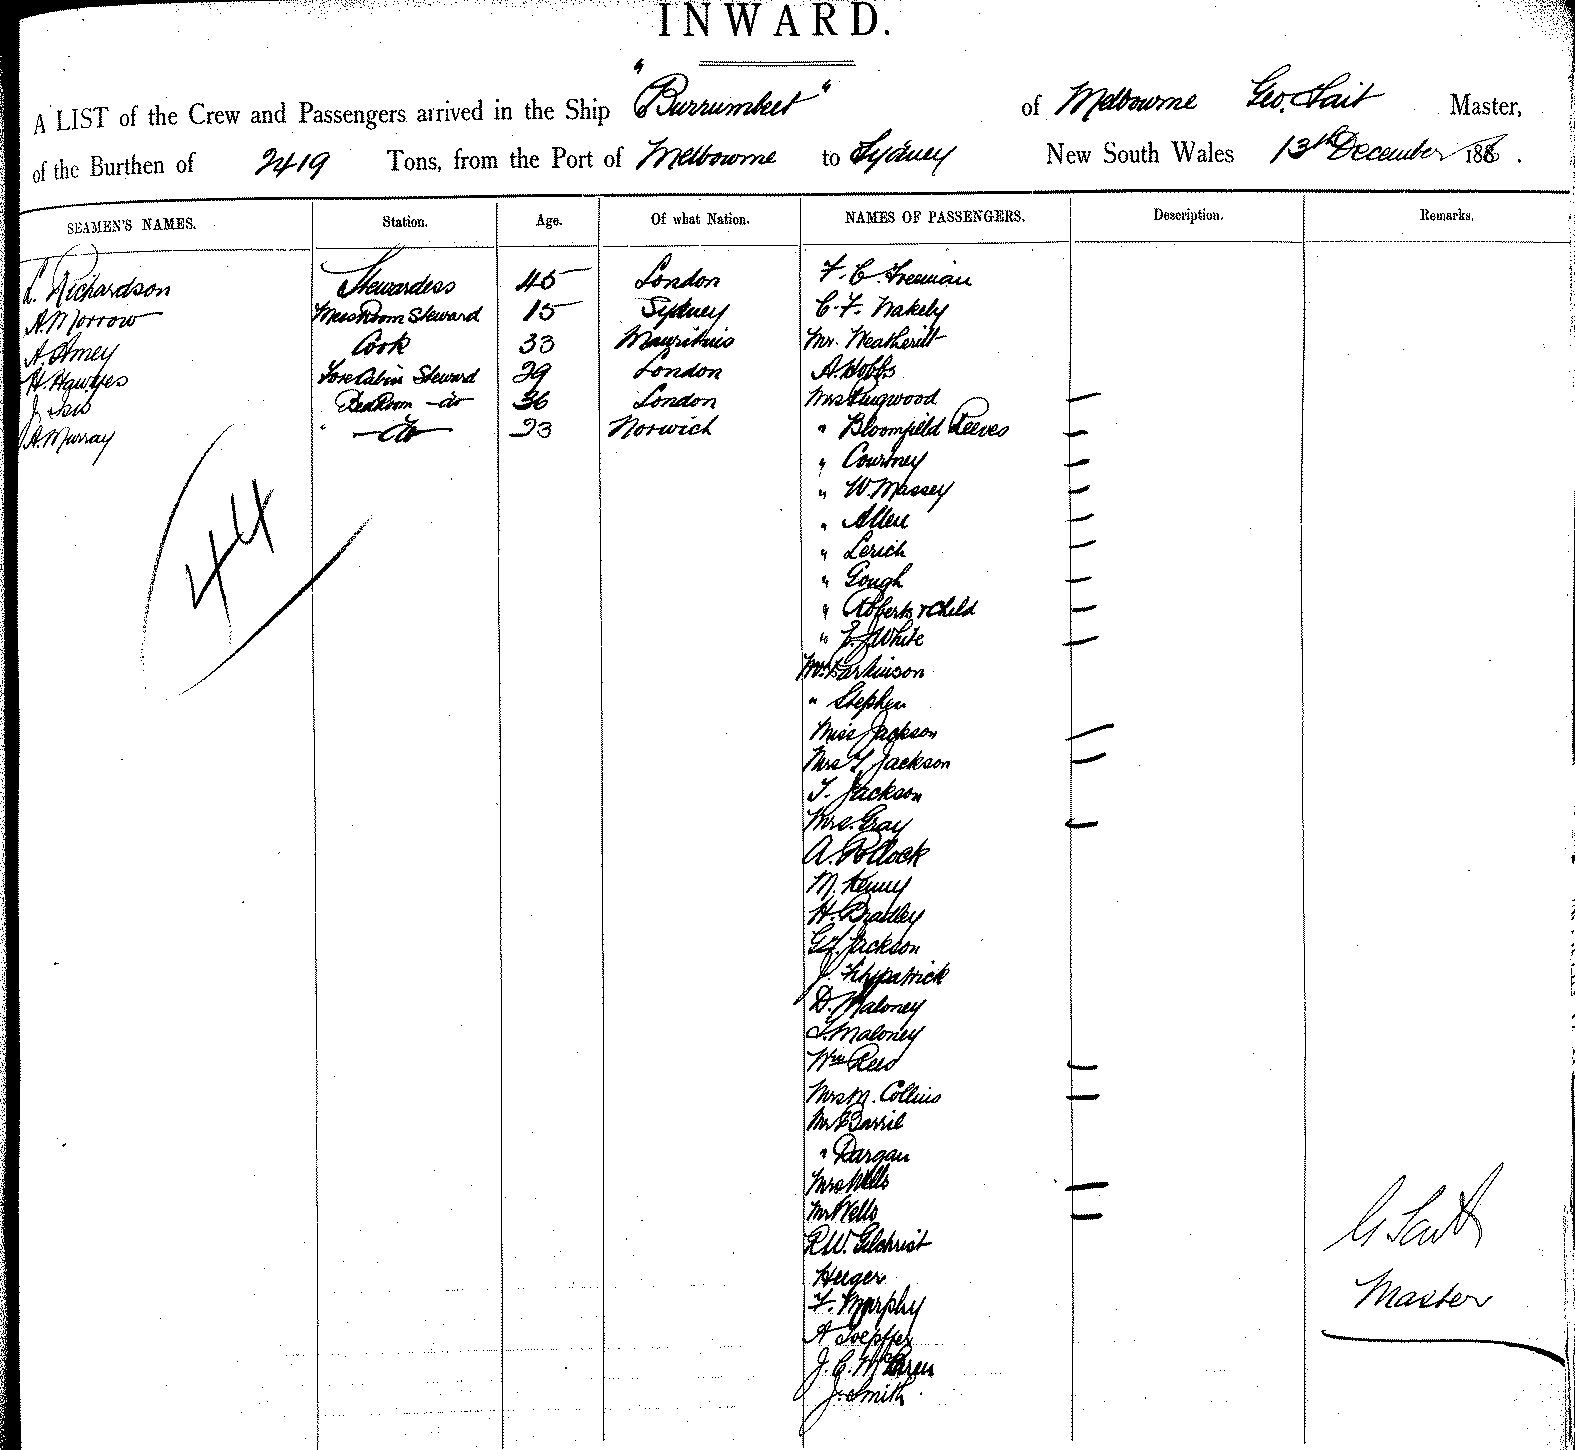 INWARD.
A LIST of the Crew and Passengers arrived in the Ship "Burrumbeet" of Melbourne Geo. Tait Master,
of the Burthen of 2419 Tons, from the Port of Melbourne to Sydney New South Wales 13th December 188
SEAMEN'S NAMES. Station. Age. Of what Nation. NAMES OF PASSENGERS. Description. Remarks.
L. Richardson Stewardess 45 London F. C. Freeman
A Morrow Mess Room Steward 15 Sydney C. F. Wakely
A. Amey Cook 33 Mauritius Mr. Weatherill
H. Hawyes Fore Cabin Steward 29 London A. Hobbs
J. Bed Room - do 36 London Mrs Kingwood
A. Murray " - do - 23 Norwich " Bloomfield Reeves
" Courtney
" W. Massey
44
" Allen
" Lerich
" Gough
" Roberts & Child
" E. J. White
Mr. Parkinson
" Stephen
Miss Jackson
Mrs T. Jackson
T. Jackson
Mrs. Gray
A. Pollock
M. Kenny
H. Bradley
G. F. Jackson
J. Fitzpatrick
D. Maloney
T. Maloney
Wm Rees
Mrs M. Collins
Mr Barril
" Dargan
Mrs Wells
Mr Wells
R. W. Gilchrist
G Tait
Heiger
Master
F. Murphy
A Toepffer
J. C. McLaren
J. Smith